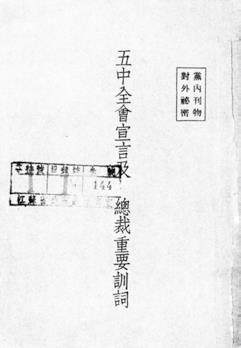 黨內刊物
對外祕密
五中全會宣言及 總裁重要訓詞
144